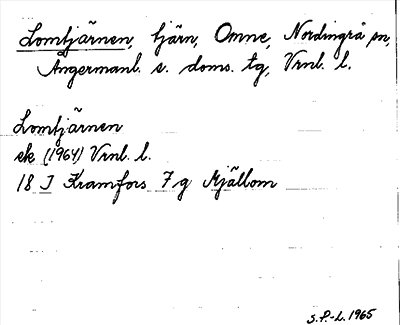 Lomtjärnen, tjärn, Omne, Nordingrå sn,
Ångermanl. s. doms. tg, Vrnl. l.
Lomtjärnen
ek (1964) Vrnl. l.
18 I Kramfors 7 g Mjällom
S.P.-L. 1965